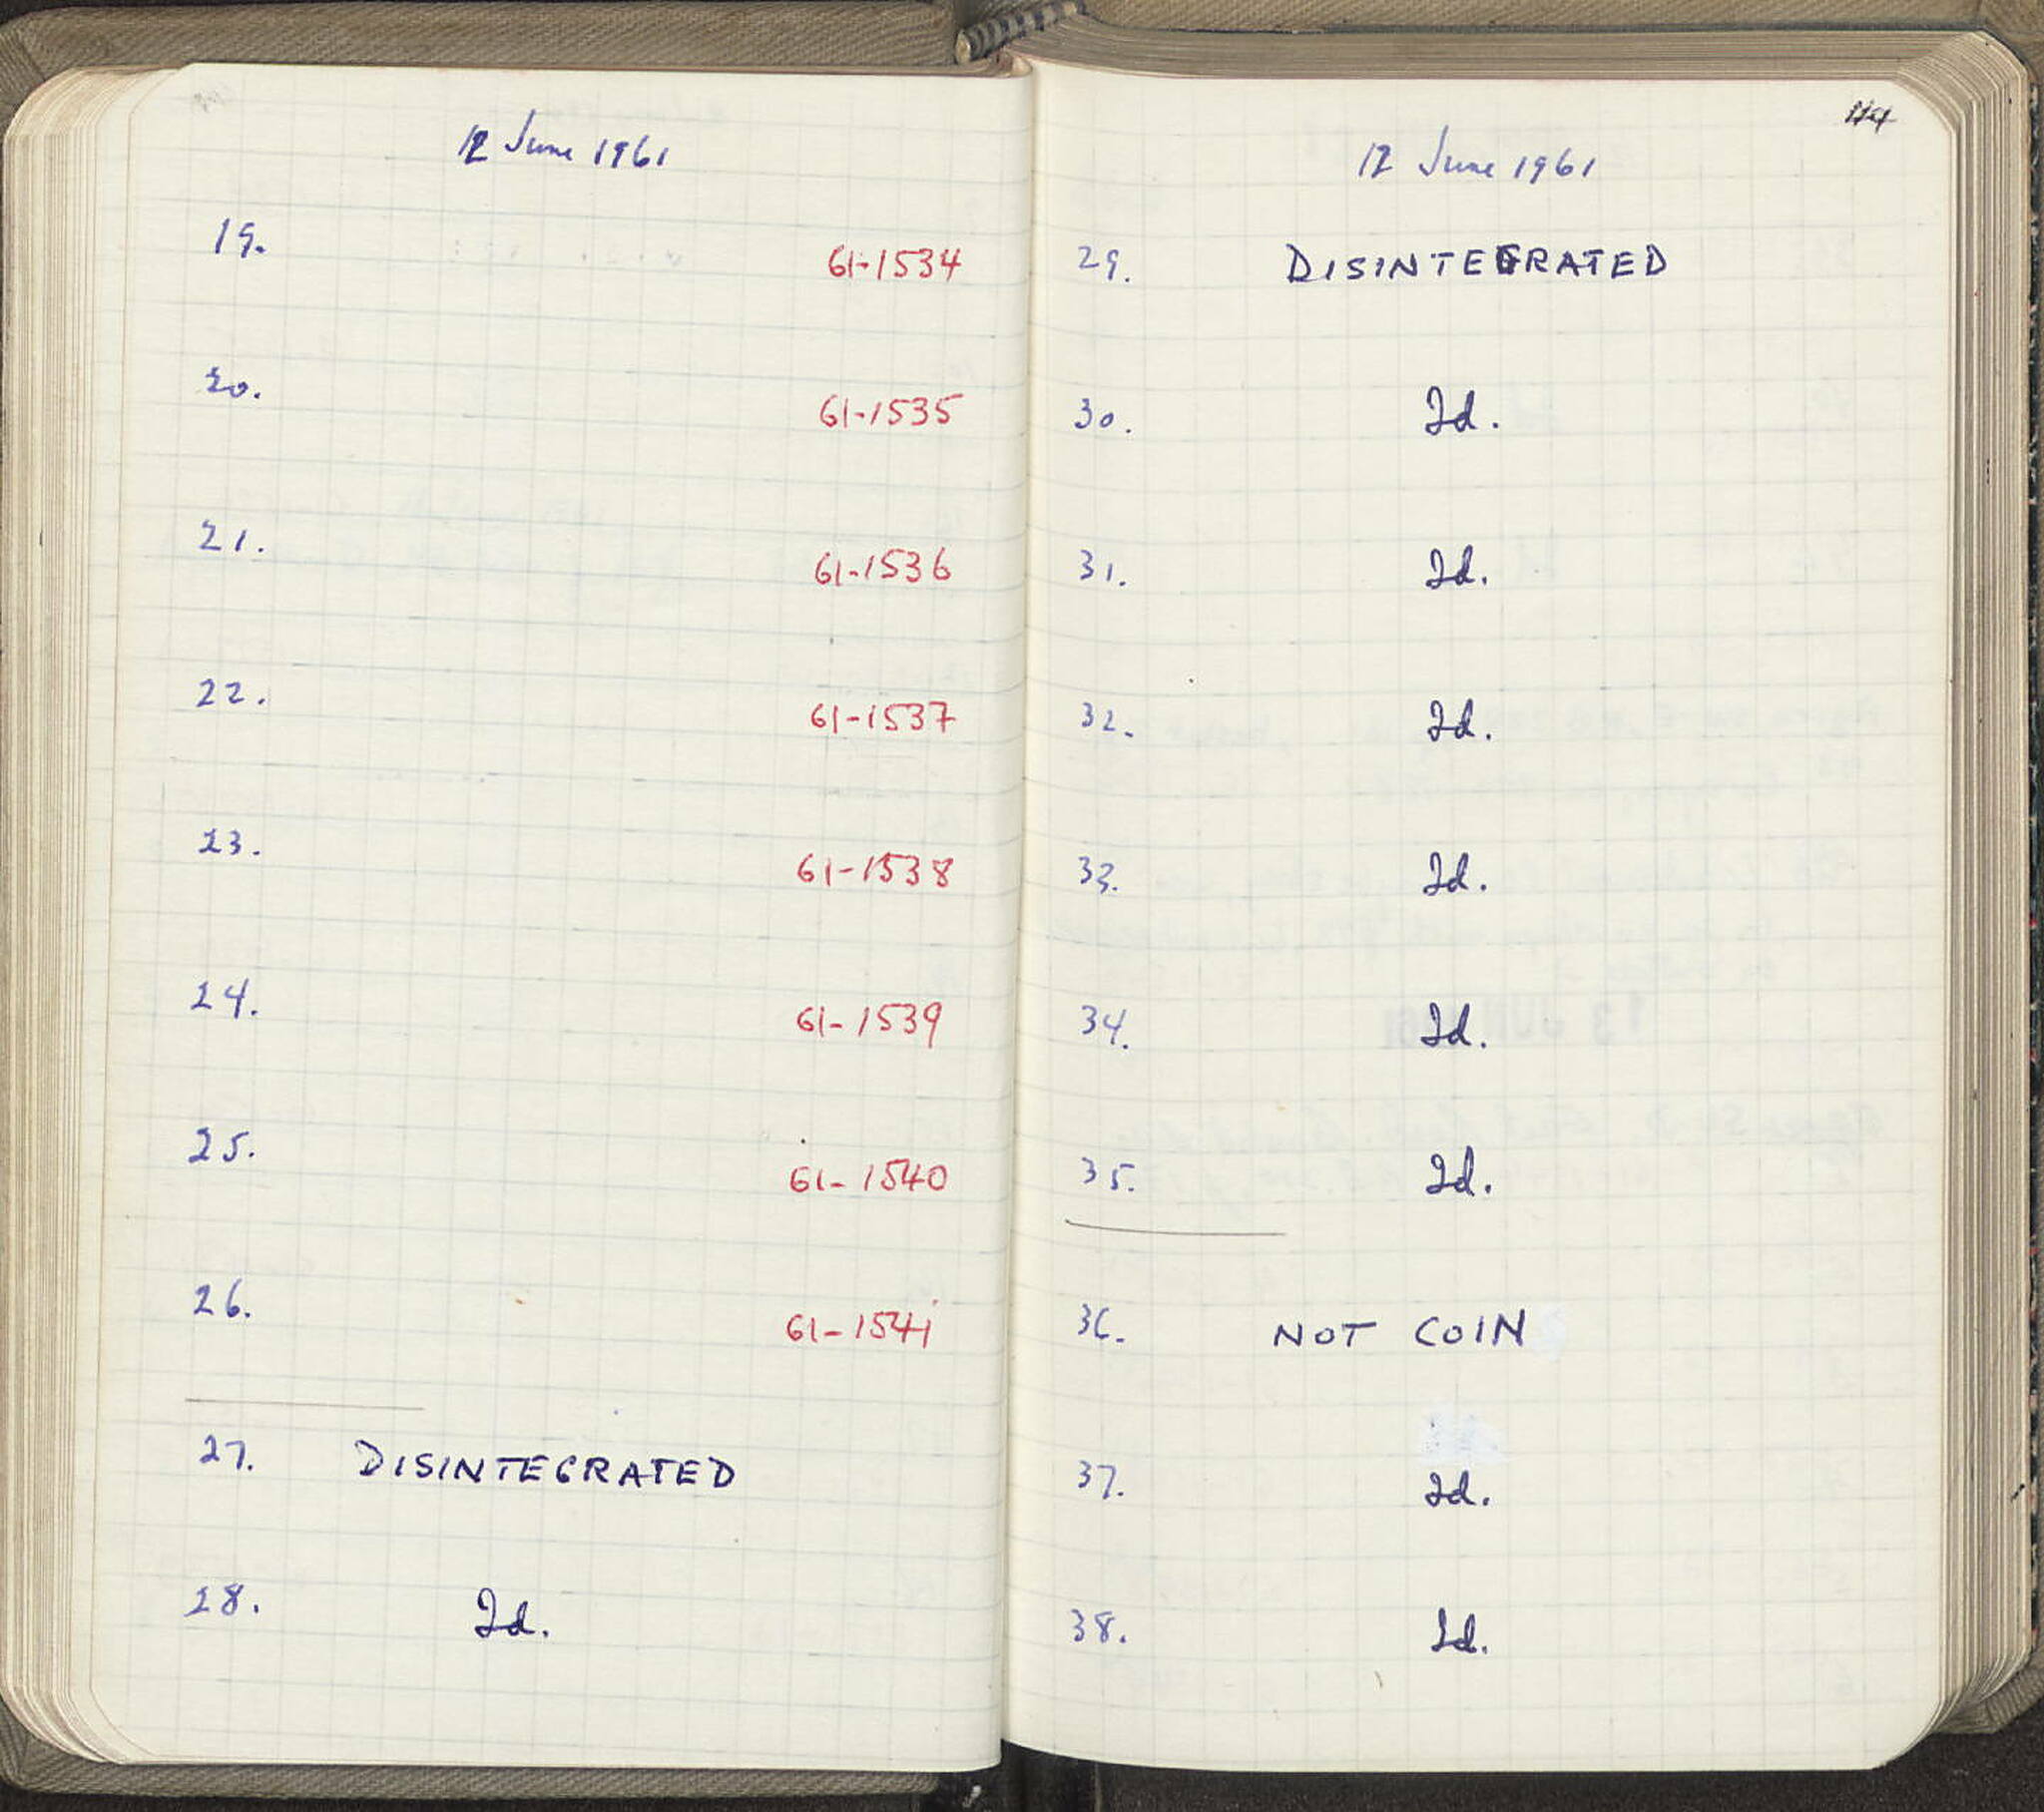 12 June 1961
19. 61-1534
20. 61-1535
21. 61-1536
22. 61-1537
23. 61-1538
24. 61-1539
25. 61-1540
26. 61-1541
27. DISINTEGRATED
28. Id.
114
12 June 1961
29. DISINTEGRATED
30. Id.
31. Id.
32. Id.
33. Id.
34. Id.
35. Id.
36. NOT COIN
37. Id.
38. Id.